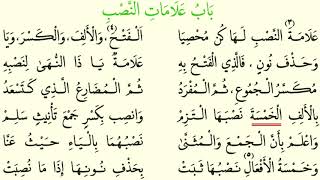 بَابُ عَلَامَاتِ النَّصْبِ
عَلَامَةُ النَّصْبِ لَهَا كُنْ مُحْصِيَا اَلْفَتْحُ، وَالْأَلِفُ، وَالْكَسْرُ، وَيَا
وَحَذْفُ نُونٍ، فَالَّذِي الْفَتْحُ بِهِ عَلَامَةٌ يَا ذَا النُّهَى لِنَصْبِهِ
مُكَسَّرُ الْجُمُوعِ، ثُمَّ الْمُفْرَدُ ثُمَّ الْمُضَارِعُ الَّذِي كَتَسْعَدُ
بِالْأَلِفِ الْخَمْسَةَ نَصْبَهَا الْتَزِمْ وَانْصِبْ بِكَسْرٍ جَمْعَ تَأْنِيثٍ سَلِمْ
وَاعْلَمْ بِأَنَّ الْجَمْعَ وَالْمُثَنَّى نَصْبُهُمَا بِالْيَاءِ حَيْثُ عَنَّا
وَخَمْسَةُ الْأَفْعَالِ نَصْبُهَا ثَبَتْ بِحَذْفِ نُونِهَا إِذَا مَا نُصِبَتْ